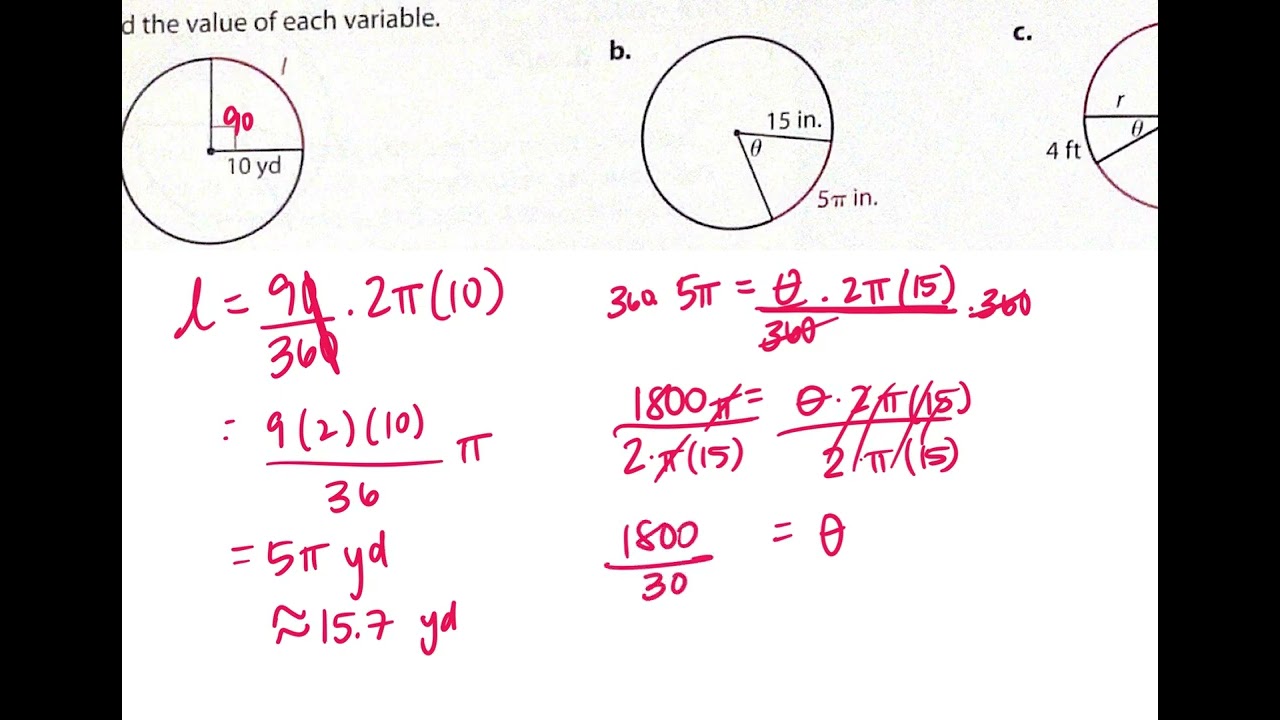 d the value of each variable.
l
90
10 yd
b.
15 in.
θ
5π in.
c.
r
θ
4 ft
l = 90/360 · 2π(10)
= 9(2)(10)/36 π
= 5π yd
≈ 15.7 yd
360 5π = θ · 2π(15)/360 · 360
1800π/2·π(15) = θ · 2π(15)/2π(15)
1800/30 = θ